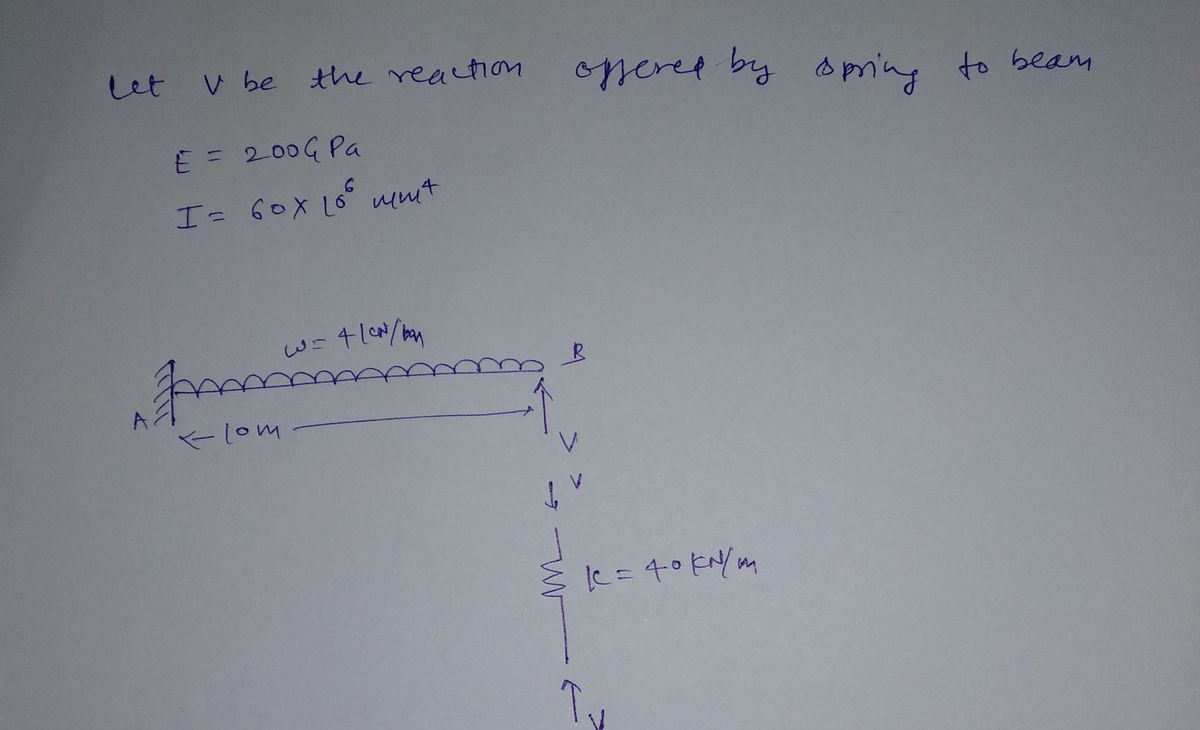 Let V be the reaction offered by spring to beam
E = 200GPa
I = 60x10⁶ mm⁴
w = 4kN/m
B
A
10m
V
V
k = 40kN/m
V